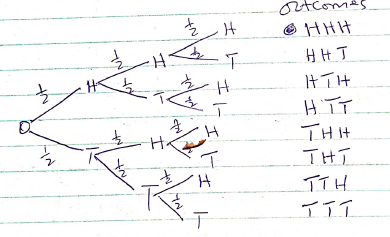 outcomes
1/2 H HHH
1/2 H 1/2 T HHT
1/2 H 1/2 T 1/2 H HTH
1/2 T HTT
O
1/2 T 1/2 H 1/2 H THH
T THT
1/2 T 1/2 H TTH
1/2 T TTT